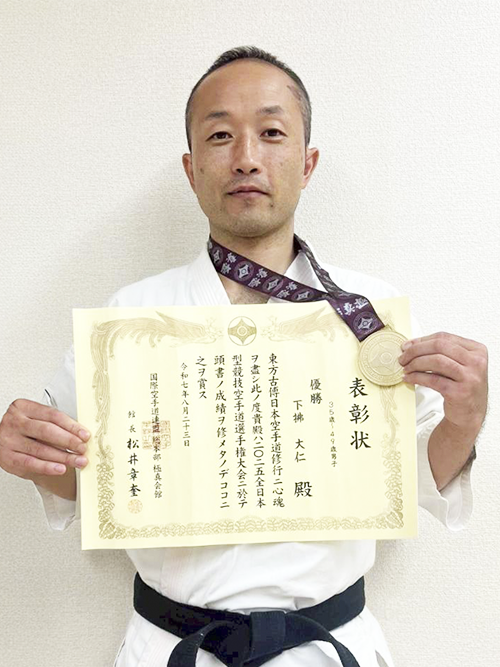 表彰状
35歳~49歳男子
優勝
下拂 大仁 殿
東方古傳日本空手道修行ニ心魂
ヲ盡シ此ノ度貴殿ハ二〇二五全日本
型競技空手道選手権大会ニ於テ
頭書ノ成績ヲ修メタノデココニ
之ヲ賞ス
令和七年八月二十三日
国際空手道連盟 総本部 極真会館
館長 松井章奎